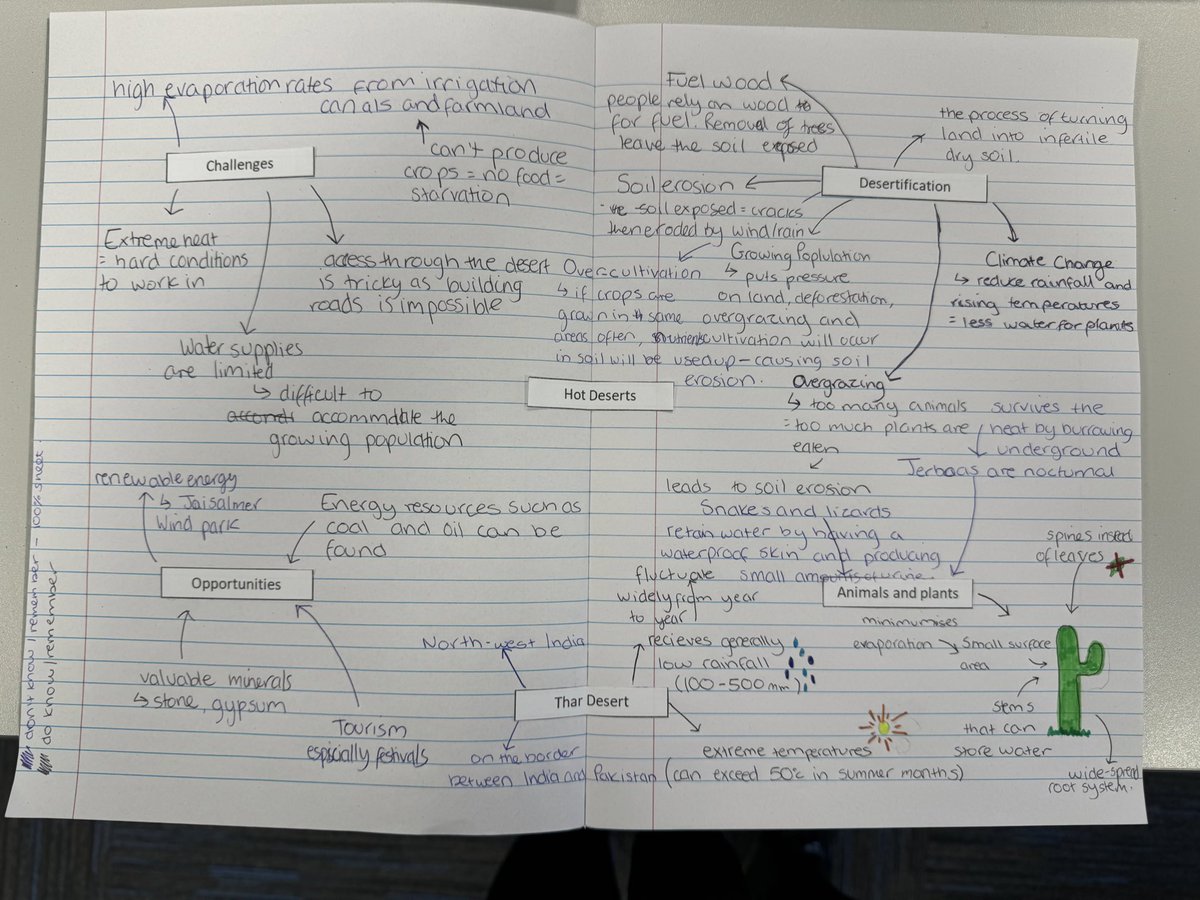 high evaporation rates from irrigation
canals and farmland
can't produce
crops = no food =
starvation
Challenges
Extreme heat
= hard conditions
to work in
access through the desert
is tricky as building
roads is impossible
Water supplies
are limited
↳ difficult to
accommdate the
growing population
Fuel wood
people rely on wood to
for fuel. Removal of trees
leave the soil exposed
the process of turning
land into infertile
dry soil.
Desertification
Soil erosion
soil exposed = cracks
then eroded by wind/rain
Growing Poplulation
↳ puts pressure
on land, deforestation,
overgrazing and
cultivation will occur
Overcultivation
↳ if crops are
grown in same
areas often, nutrients
in soil will be used up - causing soil
erosion.
Climate Change
↳ reduce rainfall and
rising temperatures
= less water for plants
Overgrazing
↳ too many animals
= too much plants are
eaten
leads to soil erosion
Hot Deserts
survives the
heat by burrowing
underground
Jerboas are nocturnal
Snakes and lizards
retain water by having a
waterproof skin and producing
small amounts of urine.
Animals and plants
spines insted
of leaves
minimumises
evaporation
Small surface
area
stems
that can
store water
wide-spread
root system.
renewable energy
↳ Jaisalmer
Wind park
Energy resources such as
coal and oil can be
found
Opportunities
valuable minerals
↳ stone, gypsum
Tourism
espicially festivals
North-west India
Thar Desert
on the border
between India and Pakistan
fluctuate
widely from year
to year
recieves generally
low rainfall
(100-500mm)
extreme temperatures
(can exceed 50°c in summer months)
don't know / remember - 100% sheet
do know / remember